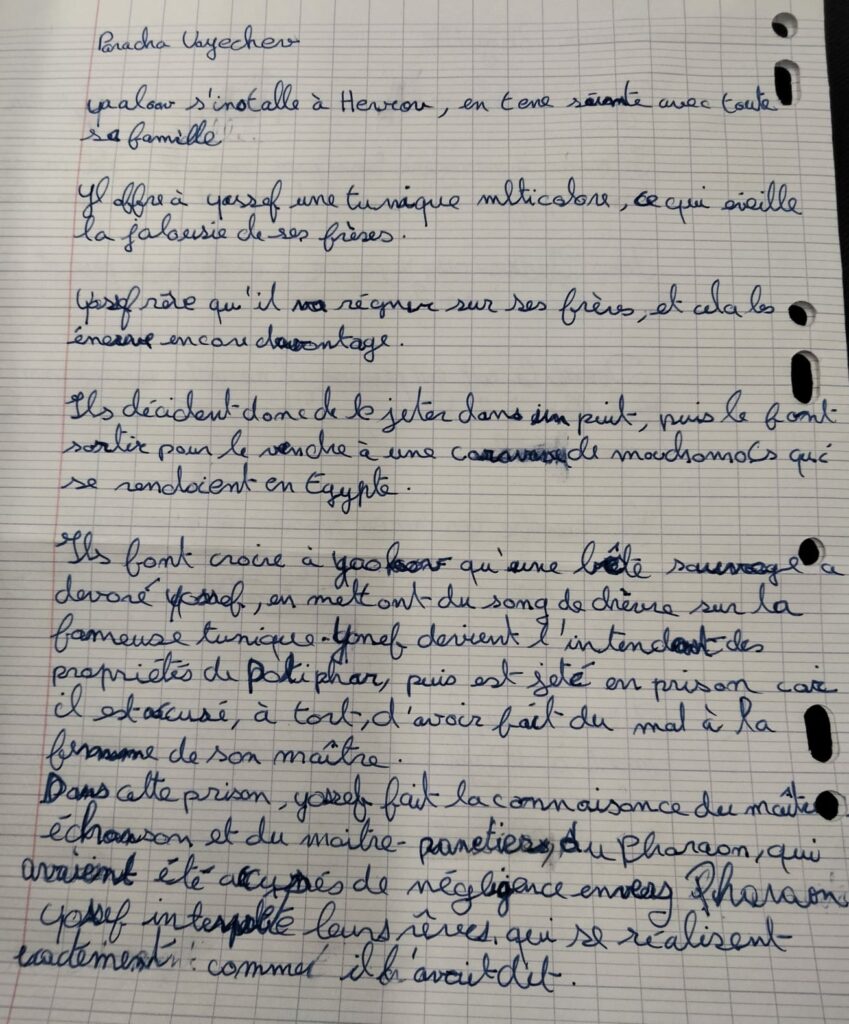 Paracha Vayechev
yaakov s'installe à Hevron, en terre sainte avec toute
sa famille
Il offre à yossef une tunique mlticolore, ce qui éveille
la jalousie de ses frères.
Yossef rêve qu'il va régner sur ses frères, et cela les
énerve encore davantage.
Ils décident donc de le jeter dans un puit, puis le font
sortir pour le vendre à une caravane de qui
se rendaient en Egypte.
Ils font croire à yaakov qu'une bête sauvage a
devoré yossef, en mettant du sang de chèvre sur la
fameuse tunique. Yossef devient l'intendant des
propriétés de Potiphar, puis est jeté en prison car
il est acusé, à tort, d'avoir fait du mal à la
femme de son maître.
Dans cette prison, yossef fait la connaisance du maître
échanson et du maitre-panetier, du Pharaon, qui
avaient été accusés de négligence envers Pharaon
yossef interpète leurs rêves, qui se réalisent
exactement comme il l'avait dit.